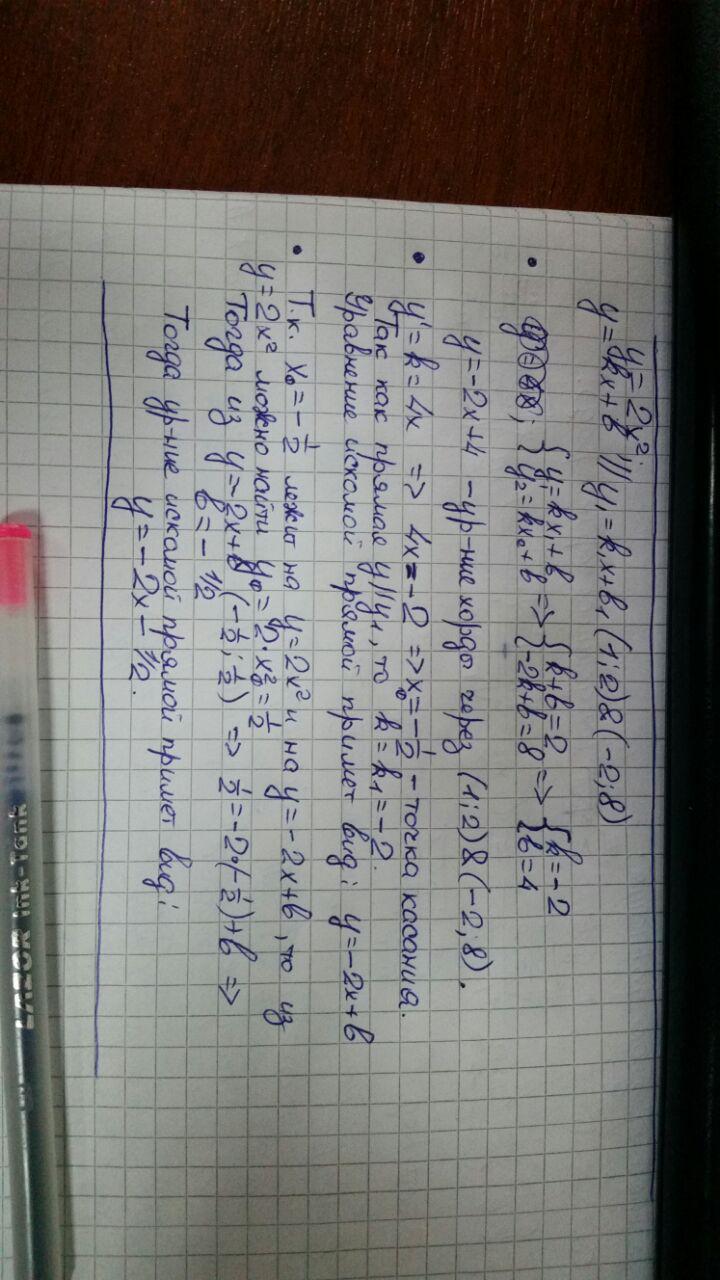 y = 2x².
y = kx + b || y₁ = k₁x + b₁ (1;2)&(-2;8)
{ y₁ = kx₁ + b y₂ = kx₀ + b => { k + b = 2 -2k + b = 8 => { k = -2 b = 4
y = -2x + 4 - ур-ние хорды через (1;2)&(-2;8).
y' = k = 4x => 4x = -2 => x₀ = -1/2 - точка касания.
Так как прямая y || y₁, то k = k₁ = -2.
Уравнение искомой прямой примет вид: y = -2x + b
Т.к. x₀ = -1/2 лежит на y = 2x² и на y = -2x + b, то из
y = 2x² можно найти y₀ = 2·x₀² = 1/2
Тогда из y = -2x + b (-1/2; 1/2) => 1/2 = -2·(-1/2) + b =>
b = -1/2
Тогда ур-ние искомой прямой примет вид:
y = -2x - 1/2.
LAZOR Ink-Tank